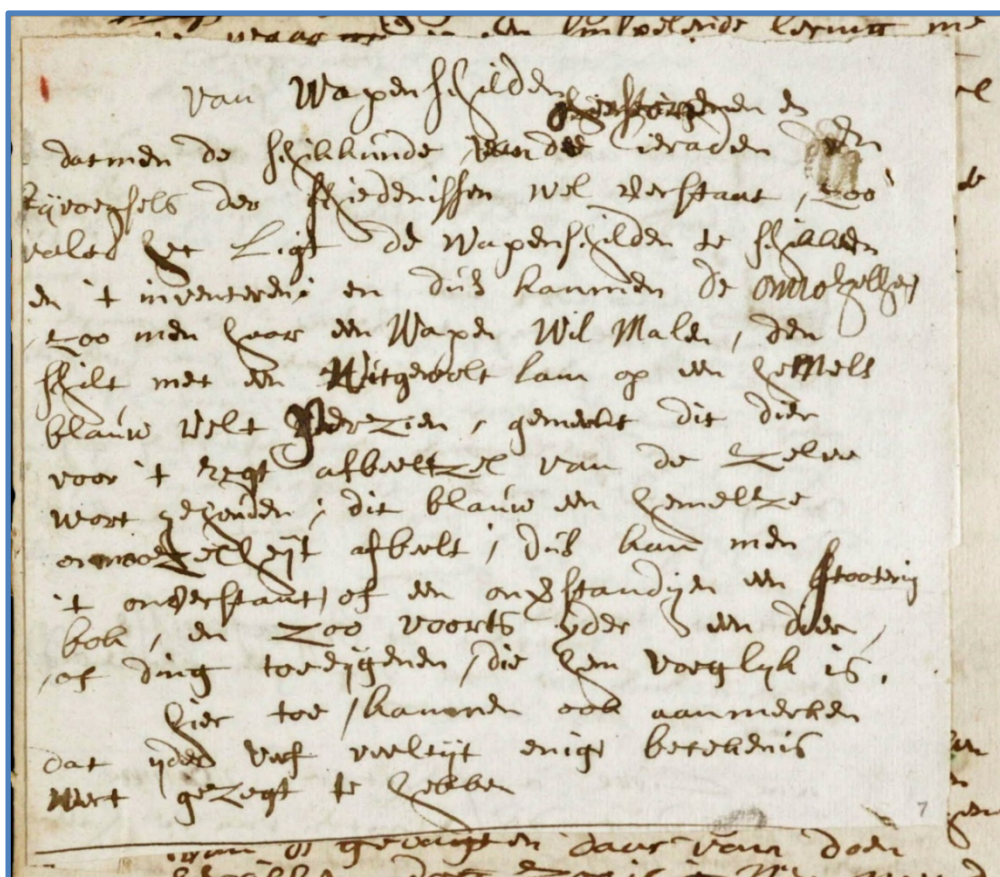 van Wapenschilden
datmen de schikkunde van de Cieraden en
bijvoegsels der schiedenissen wel verstaat, zoo
valt het Ligt de Wapenschilden te schikken
en 't inventeren; en dus kanmen de onnozelheyt
zoo men haar een Wapen Wil Malen, den
schilt met een Witgewolt lam op een heMels
blauw velt Verzien, gemerkt dit dier
voor 't regt afbeeltzel van de zelve
wort gehouden; dit blauw een hemeltze
onnozelheyt afbeelt, dus kan men
't onverstant, of een onverstandigen een stooterig
bok, en zoo voorts yder een dier,
of ding toeeijgenen, die hem voeglyk is.
hier toe, kanmen ook aanmerken
dat yder verf veeltijt enige betekenis
Wert gezegt te hebben
7
daar van doen